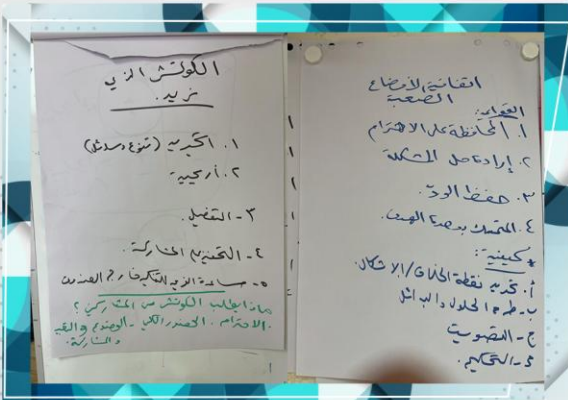 الكوتش الذي
نريد.
١. التجديد (تنوع وسائل)
٢. أريحية
٣- التفضيل.
٤- التحفيز للمشاركة.
٥- مساعدة
ماذا يطلب الكوتش من المشاركين؟
. الاحترام. الحضور الكلي - الوضوح
والمشاركة.
اتفاقية الأوضاع
الصعبة
القواعد:
١. المحافظة على الاحترام
٢. إرادة حل المشكلة
٣. حفظ الودّ.
٤. التمسك بوحدة الهدف.
* كيفية:
أ. تحديد نقطة الخلاف/الإشكال.
ب- طرح الحلول والبدائل
ج- التصويت
د- التحكيم.